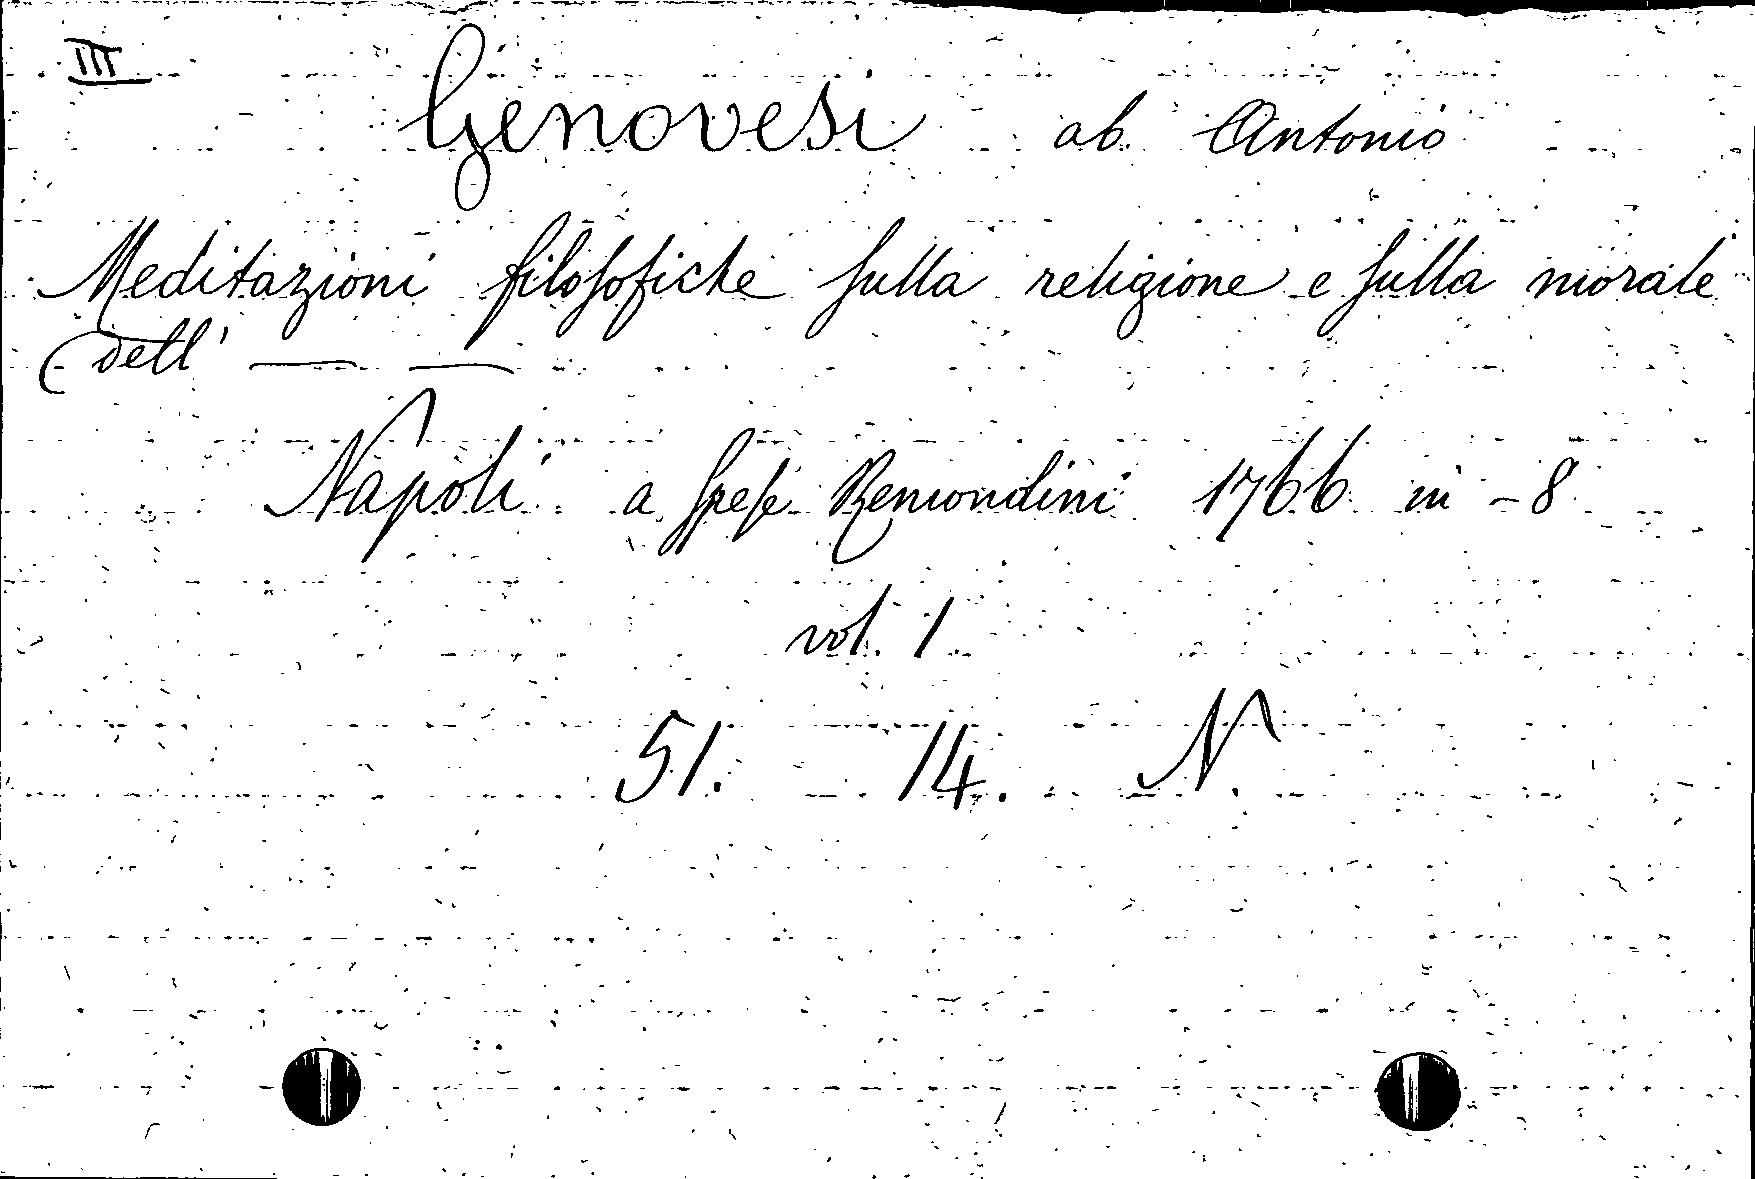 III
Genovesi ab. Antonio
Meditazioni filosofiche sulla religione e sulla morale
dell' — —
Napoli a spese Remondini 1766 in - 8
vol. 1.
51. 14. N.